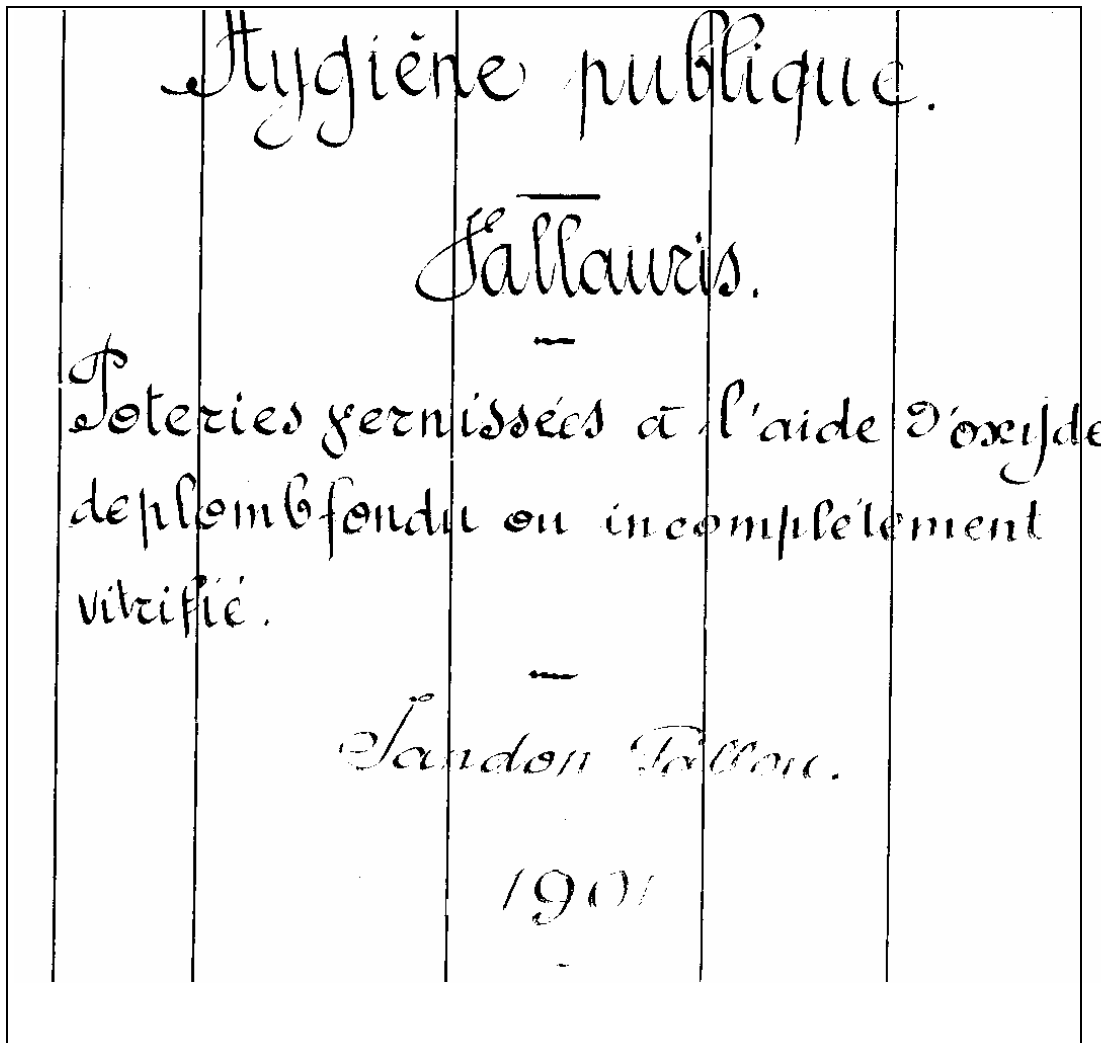 Hygiène publique.
Vallauris.
Poteries vernissées à l'aide d'oxyde
de plomb fondu ou incomplètement
vitrifié.
Jandon
1901